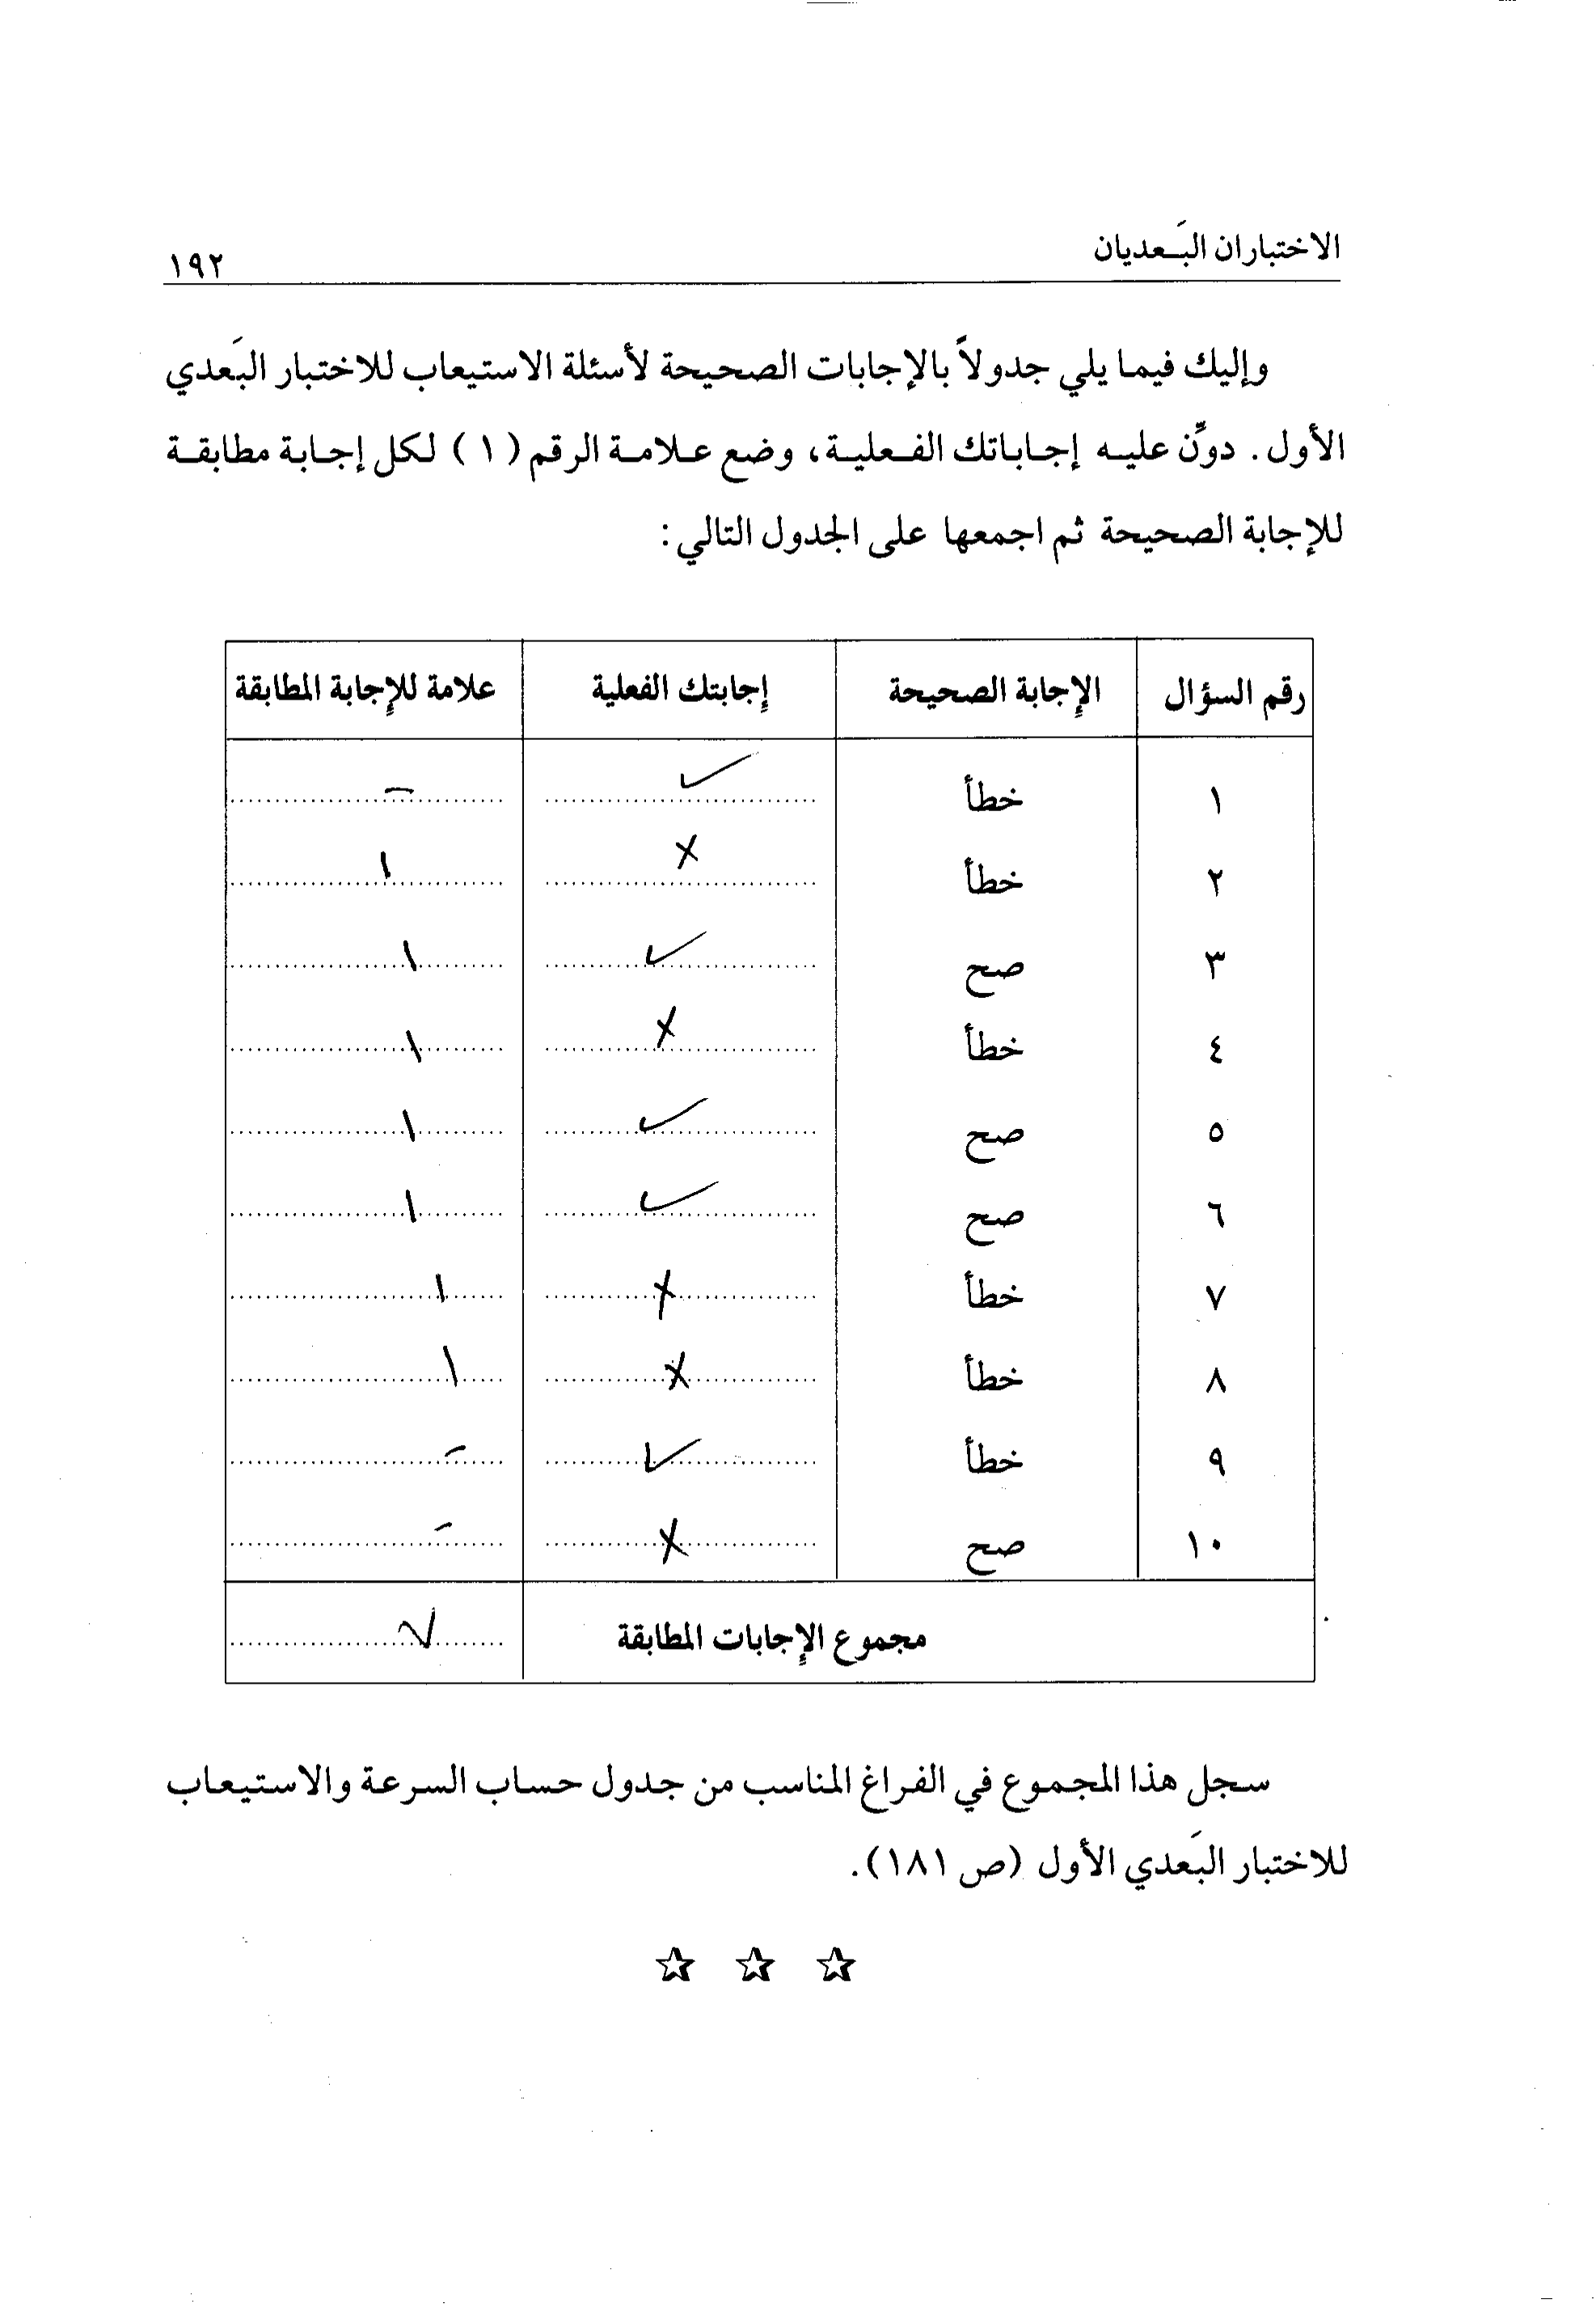 الاختباران البَعديان
١٩٢
وإليك فيما يلي جدولاً بالإجابات الصحيحة لأسئلة الاستيعاب للاختبار البَعدي
الأول. دوِّن عليه إجاباتك الفعلية، وضع علامة الرقم (١) لكل إجابة مطابقة
للإجابة الصحيحة ثم اجمعها على الجدول التالي:
رقم السؤال الإجابة الصحيحة إجابتك الفعلية علامة للإجابة المطابقة
١ خطأ ✓ –
٢ خطأ ✗ ١
٣ صح ✓ ١
٤ خطأ ✗ ١
٥ صح ✓ ١
٦ صح ✓ ١
٧ خطأ ✗ ١
٨ خطأ ✗ ١
٩ خطأ ✓ –
١٠ صح ✗ –
مجموع الإجابات المطابقة ٧
سجل هذا المجموع في الفراغ المناسب من جدول حساب السرعة والاستيعاب
للاختبار البَعدي الأول (ص ١٨١).
☆ ☆ ☆